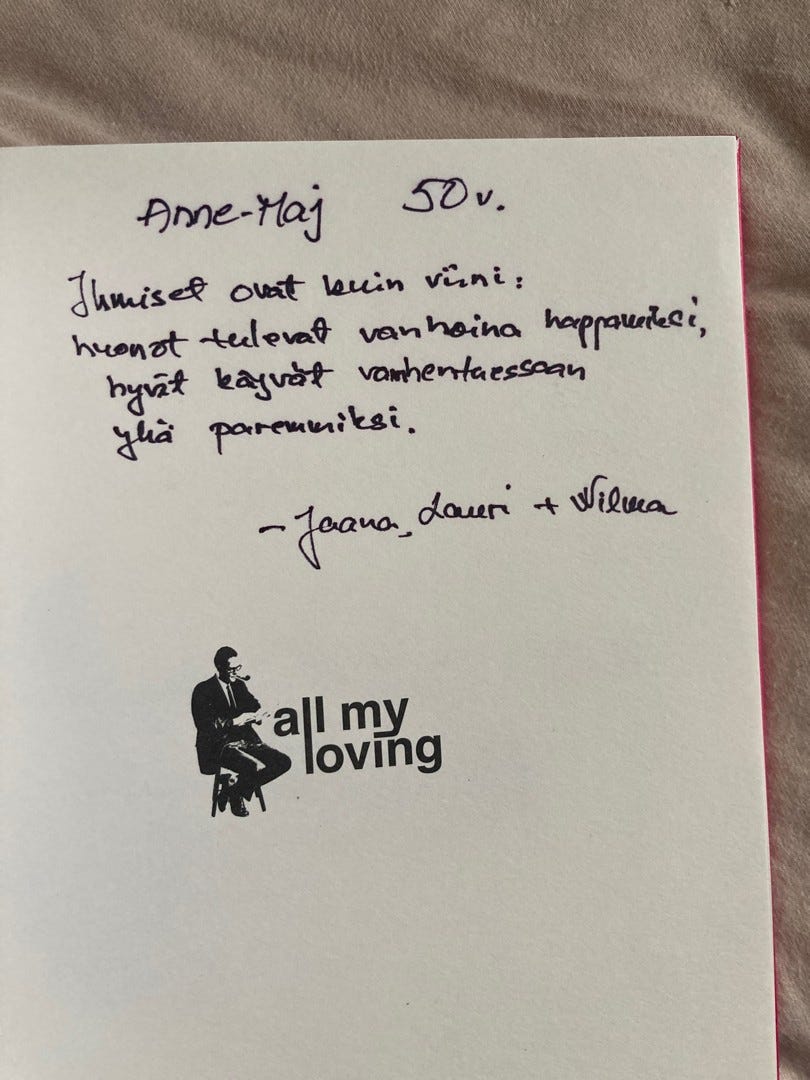 Anne-Maj 50 v.
Ihmiset ovat kuin viini:
huonot tulevat vanhoina happamiksi,
hyvät käyvät vanhentuessaan
yhä paremmiksi.
- Jaana, Lauri + Wilma
all my
loving